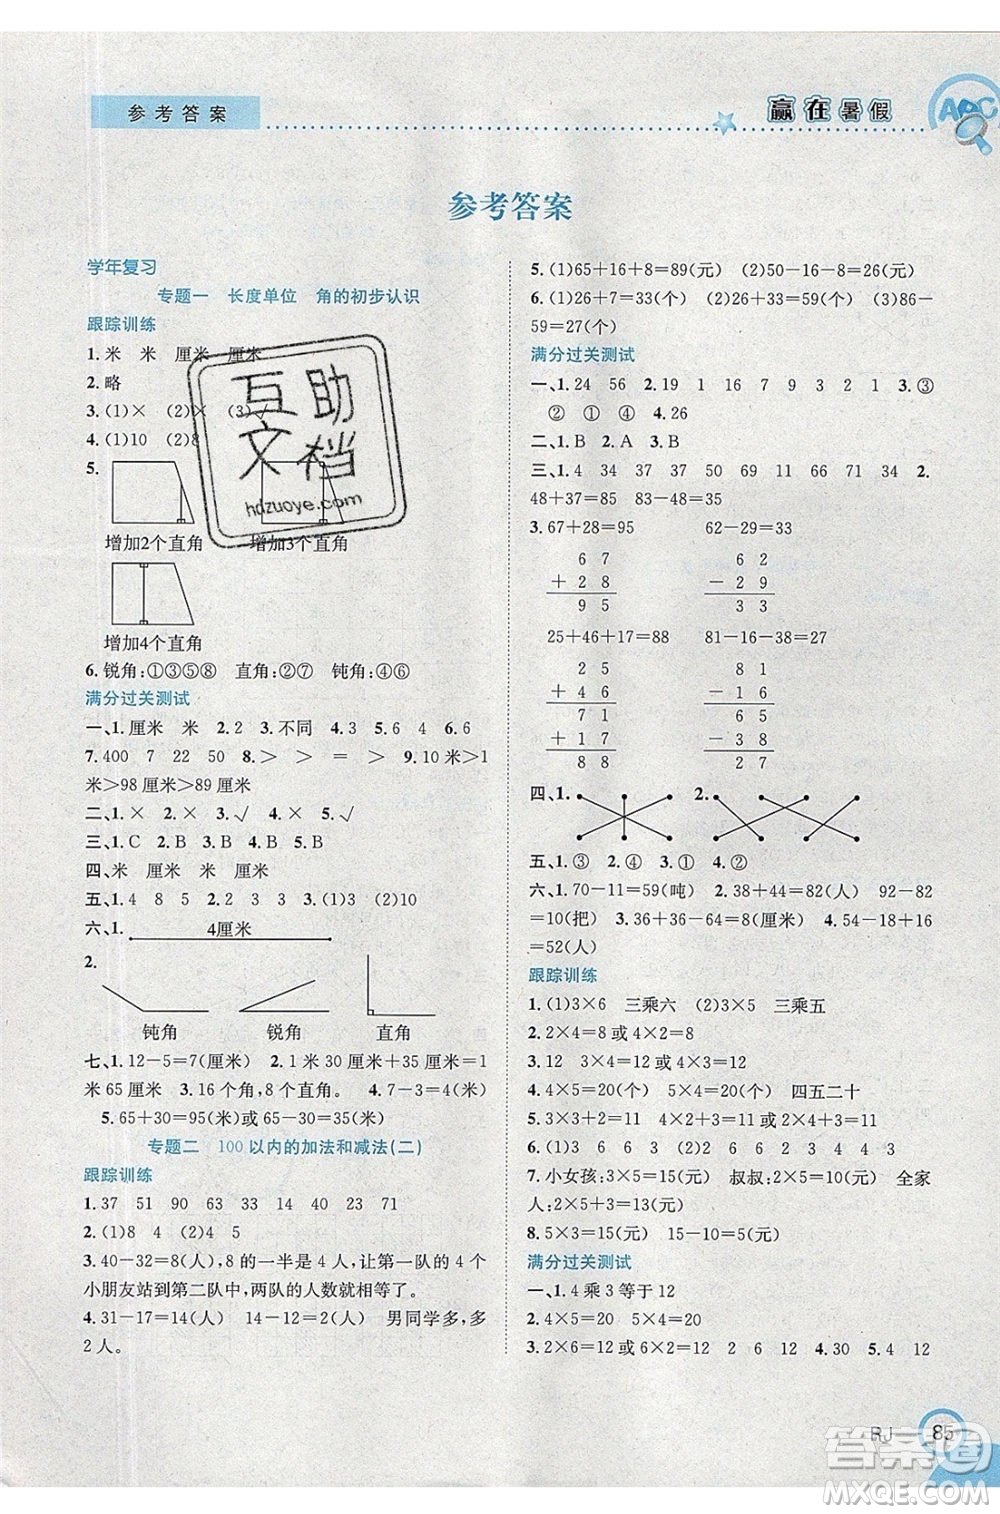 参考答案
赢在暑假
ABC
参考答案
学年复习
专题一 长度单位 角的初步认识
跟踪训练
1.米 米 厘米 厘米
2.略
3.(1)× (2)× (3)√
4.(1)10 (2)8
5.
增加2个直角 增加3个直角
增加4个直角
6.锐角:①③⑤⑧ 直角:②⑦ 钝角:④⑥
满分过关测试
一、1.厘米 米 2.2 3.不同 4.3 5.6 4 6.6
7.400 7 22 50 8.> > = > 9.10厘米>1
米>98厘米>89厘米
二、1.× 2.× 3.√ 4.× 5.√
三、1.C 2.B 3.B 4.B 5.B
四、米 厘米 米 厘米
五、1.4 8 5 2.3 3 3.(1)3 (2)10
六、1. 4厘米
2.
钝角 锐角 直角
七、1.12-5=7(厘米) 2.1米30厘米+35厘米=1
米65厘米 3.16个角,8个直角。 4.7-3=4(厘米)
5.65+30=95(厘米)或65-30=35(米)
专题二 100以内的加法和减法(二)
跟踪训练
1.37 51 90 63 33 40 23 71
2.(1)2 4 (2)4 5
3.40-32=8(人),8的一半是4人,让第一队的4个
小朋友站到第二队中,两队的人数就相等了。
4.31-17=14(人) 14-12=2(人) 男同学多,多
2人。
5.(1)65+16+8=89(元) (2)50-16-8=26(元)
6.(1)27+32=59(个) (2)86>59 (3)86-
59=27(个)
满分过关测试
一、1.24 56 2.19 1 16 7 9 3 2 1 3.③
② ① ④ 4.26
二、1.B 2.A 3.B
三、1.4 34 37 37 50 69 11 66 71 34 2.
48+37=85 58+27=85
3.67+28=95 62-29=33
6 7 6 2
+ 2 8 - 2 9
9 5 3 3
25+46+17=88 81-16-38=27
2 5 8 1
+ 4 6 - 1 6
7 1 6 5
+ 1 7 - 3 8
8 8 2 7
四、1. 2.
五、1.③ 2.④ 3.① 4.②
六、1.70-11=59(吨) 2.38+44=82(人) 92-82
=10(把) 3.64+36-36-64=8(厘米) 4.54-18+16
=52(人)
跟踪训练
1.(1)3×6 三乘六 (2)3×5 三乘五
2.2×4=8或4×2=8
3.12 3×4=12或4×3=12
4.4×5=20(个) 5×4=20(个) 四五二十
5.3×3+2=11 4×3-1=11
6.2 3 1 6 3 3 4 2 2 4 3
7.小女孩:3×5=15(元) 叔叔:5(元) 全家
人:2×5+3=13(元)
8.5×3=15(元) 15-10=5(元)
满分过关测试
一、1.4乘3等于12
2.4×5=20 5×4=20
3.2×6=12或6×2=12 2 6 12 4.30 5.4 12
RJ 85
互助文档
hdzuoye.com
答案圈
MXQE.COM